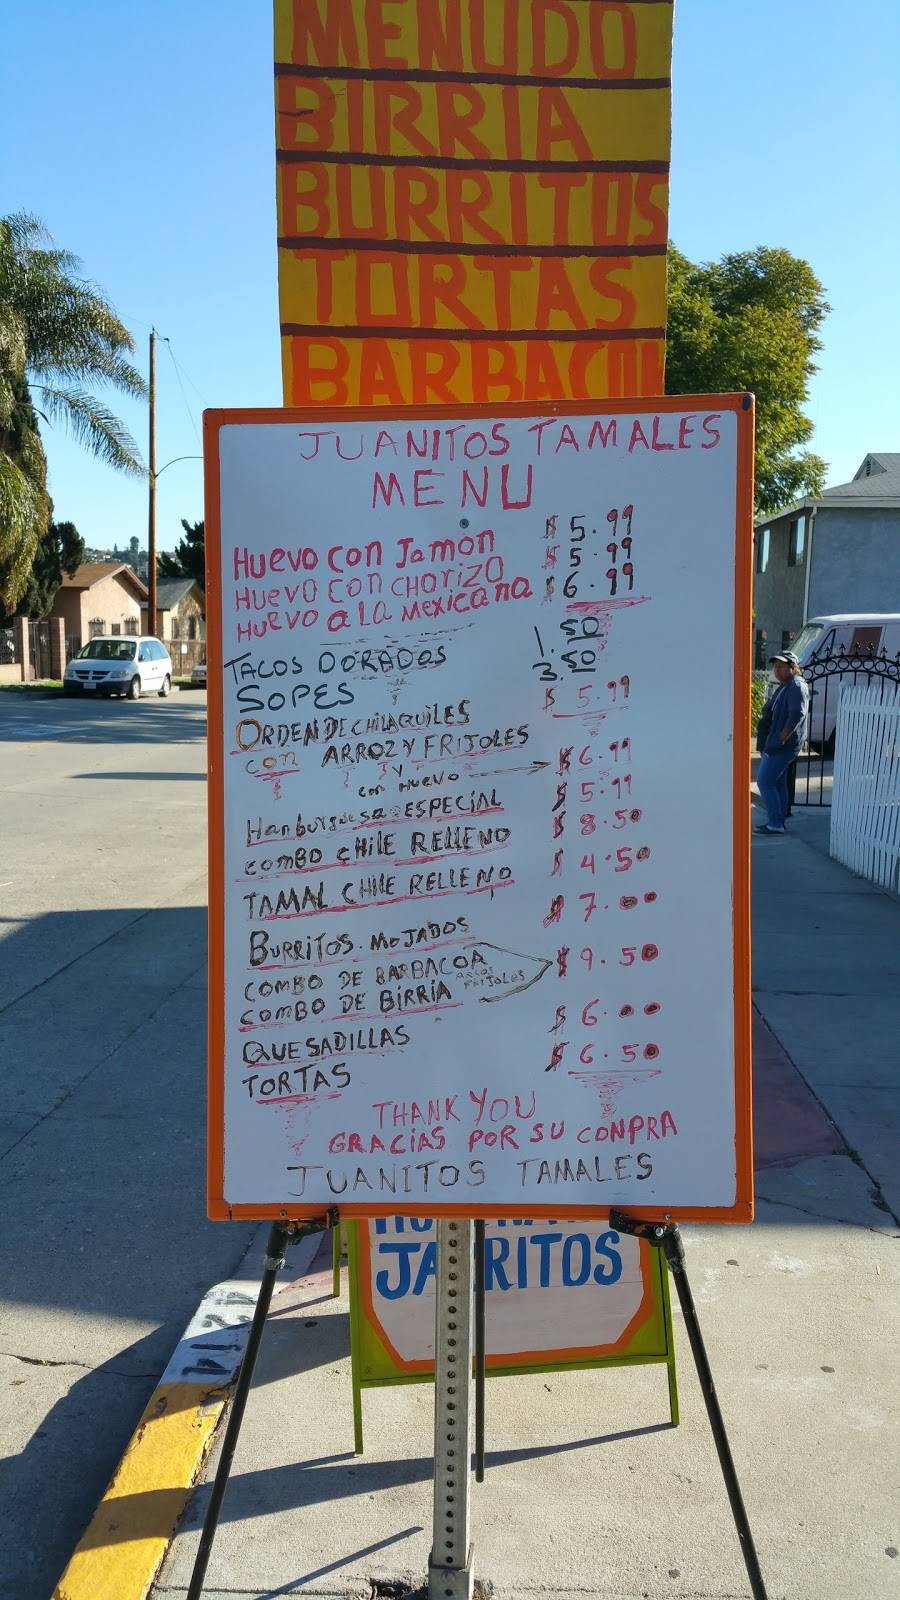 MENUDO
BIRRIA
BURRITOS
TORTAS
BARBACOA
JUANITOS TAMALES
MENU
HUEVO CON JAMON $5.99
HUEVO CON CHORIZO $5.99
HUEVO A LA MEXICANA $6.99
TACOS DORADOS 1.50
SOPES 3.50
ORDEN DE CHILAQUILES $5.99
CON ARROZ Y FRIJOLES
Y
CON HUEVO $6.99
Hamburguesa ESPECIAL $5.99
COMBO CHILE RELLENO $8.50
TAMAL CHILE RELLENO $4.50
BURRITOS. MOJADOS $7.00
COMBO DE BARBACOA $9.50
COMBO DE BIRRIA ARROS FRIJOLES
QUESADILLAS $6.00
TORTAS $6.50
THANK YOU
GRACIAS POR SU CONPRA
JUANITOS TAMALES
JARRITOS